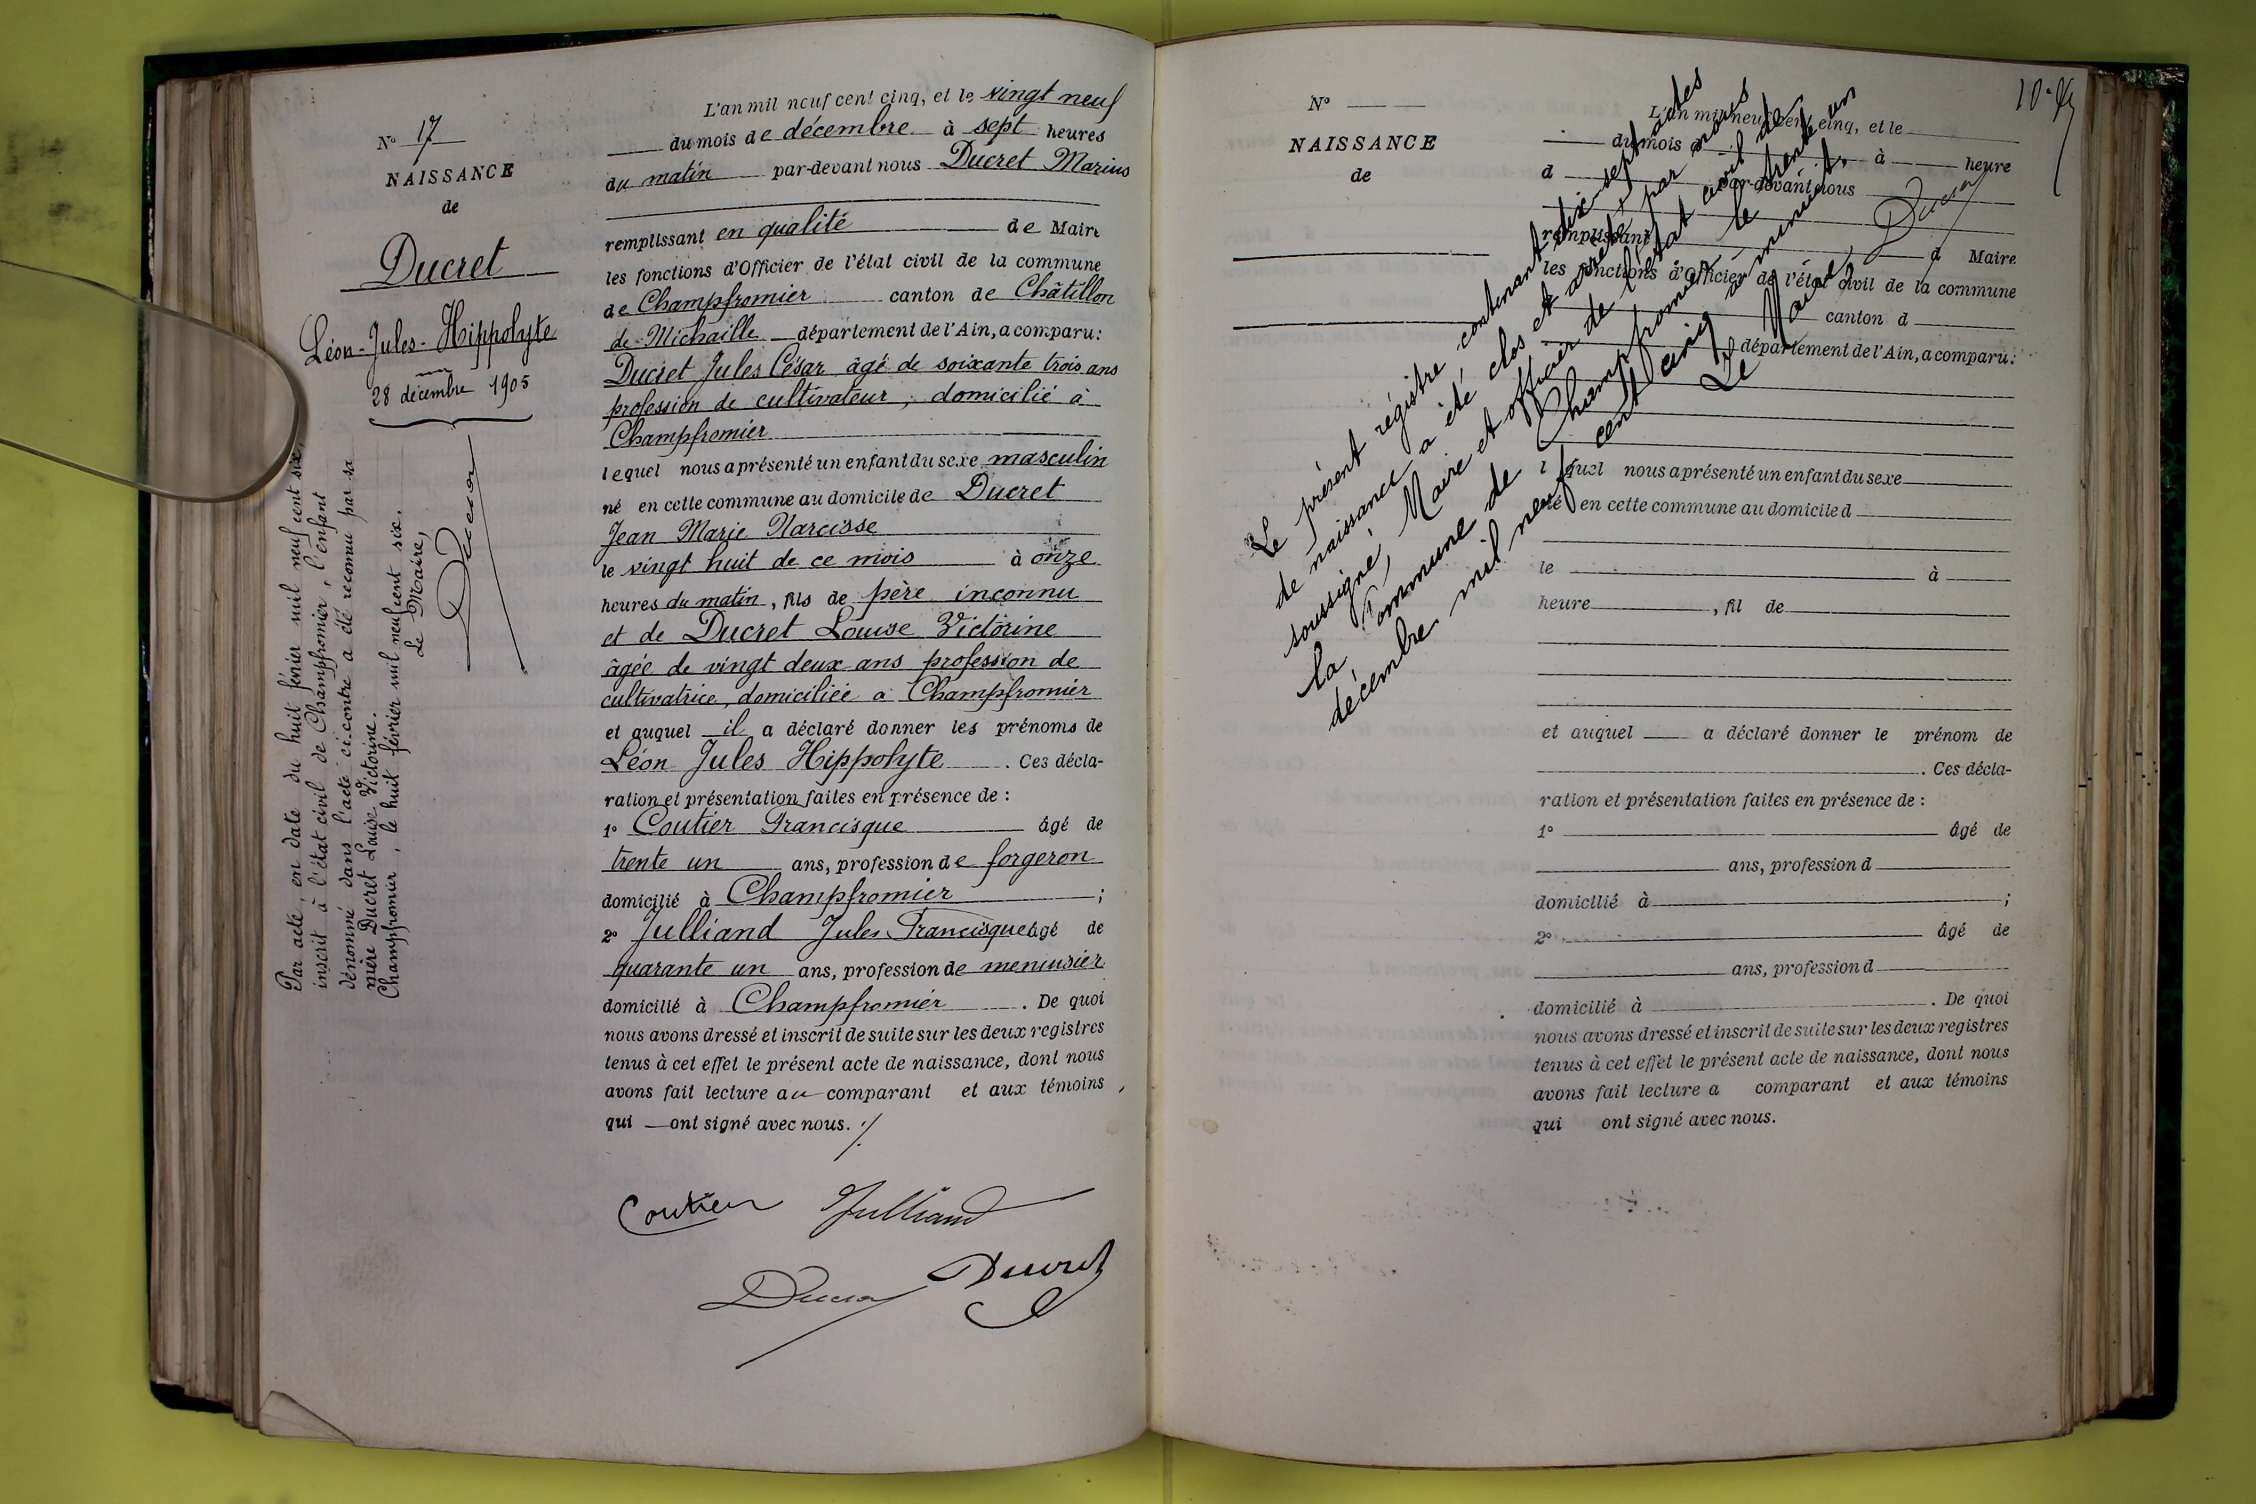 N° 17
NAISSANCE
de
Ducret
Léon-Jules-Hippolyte
28 décembre 1905
Par acte, en date du huit février mil neuf cent six,
inscrit à l'état civil de Champfromier, l'enfant
dénommé dans l'acte ci-contre a été reconnu par sa
mère Ducret Louise Victorine.
Champfromier, le huit février mil neuf cent six.
Le Maire,
Ducret
L'an mil neuf cent cinq, et le vingt neuf
du mois de décembre à sept heures
du matin par-devant nous Ducret Marius
remplissant en qualité de Maire
les fonctions d'Officier de l'état civil de la commune
de Champfromier canton de Châtillon
de-Michaille département de l'Ain, a comparu:
Ducret Jules César âgé de soixante trois ans
profession de cultivateur, domicilié à
Champfromier
lequel nous a présenté un enfant du sexe masculin
né en cette commune au domicile de Ducret
Jean Marie Narcisse
le vingt huit de ce mois à onze
heures du matin, fils de père inconnu
et de Ducret Louise Victorine
âgée de vingt deux ans profession de
cultivatrice, domiciliée à Champfromier
et auquel il a déclaré donner les prénoms de
Léon Jules Hippolyte. Ces décla-
ration et présentation faites en présence de :
1° Coutier Francisque âgé de
trente un ans, profession de forgeron
domicilié à Champfromier ;
2° Julliand Jules Francisque âgé de
quarante un ans, profession de menuisier
domicilié à Champfromier. De quoi
nous avons dressé et inscrit de suite sur les deux registres
tenus à cet effet le présent acte de naissance, dont nous
avons fait lecture au comparant et aux témoins,
qui ont signé avec nous. ./.
Coutier Julliand
Ducret Ducret
N°
NAISSANCE
de
Le présent régistre, contenant dix-sept actes
de naissance a été clos et arrêté, par nous
soussigné, Maire et officier de l'état civil de
la Commune de Champfromier le trente un
décembre mil neuf cent cinq à minuit.
Le Maire,
Ducret
L'an mil neuf cent cinq, et le
du mois d à heure
d par-devant nous
remplissant d Maire
les fonctions d'Officier de l'état civil de la commune
canton d
département de l'Ain, a comparu:
l quel nous a présenté un enfant du sexe
né en cette commune au domicile d
le à
heure , fil de
et auquel a déclaré donner le prénom de
. Ces décla-
ration et présentation faites en présence de :
1° âgé de
ans, profession d
domicilié à ;
2° âgé de
ans, profession d
domicilié à . De quoi
nous avons dressé et inscrit de suite sur les deux registres
tenus à cet effet le présent acte de naissance, dont nous
avons fait lecture a comparant et aux témoins
qui ont signé avec nous.